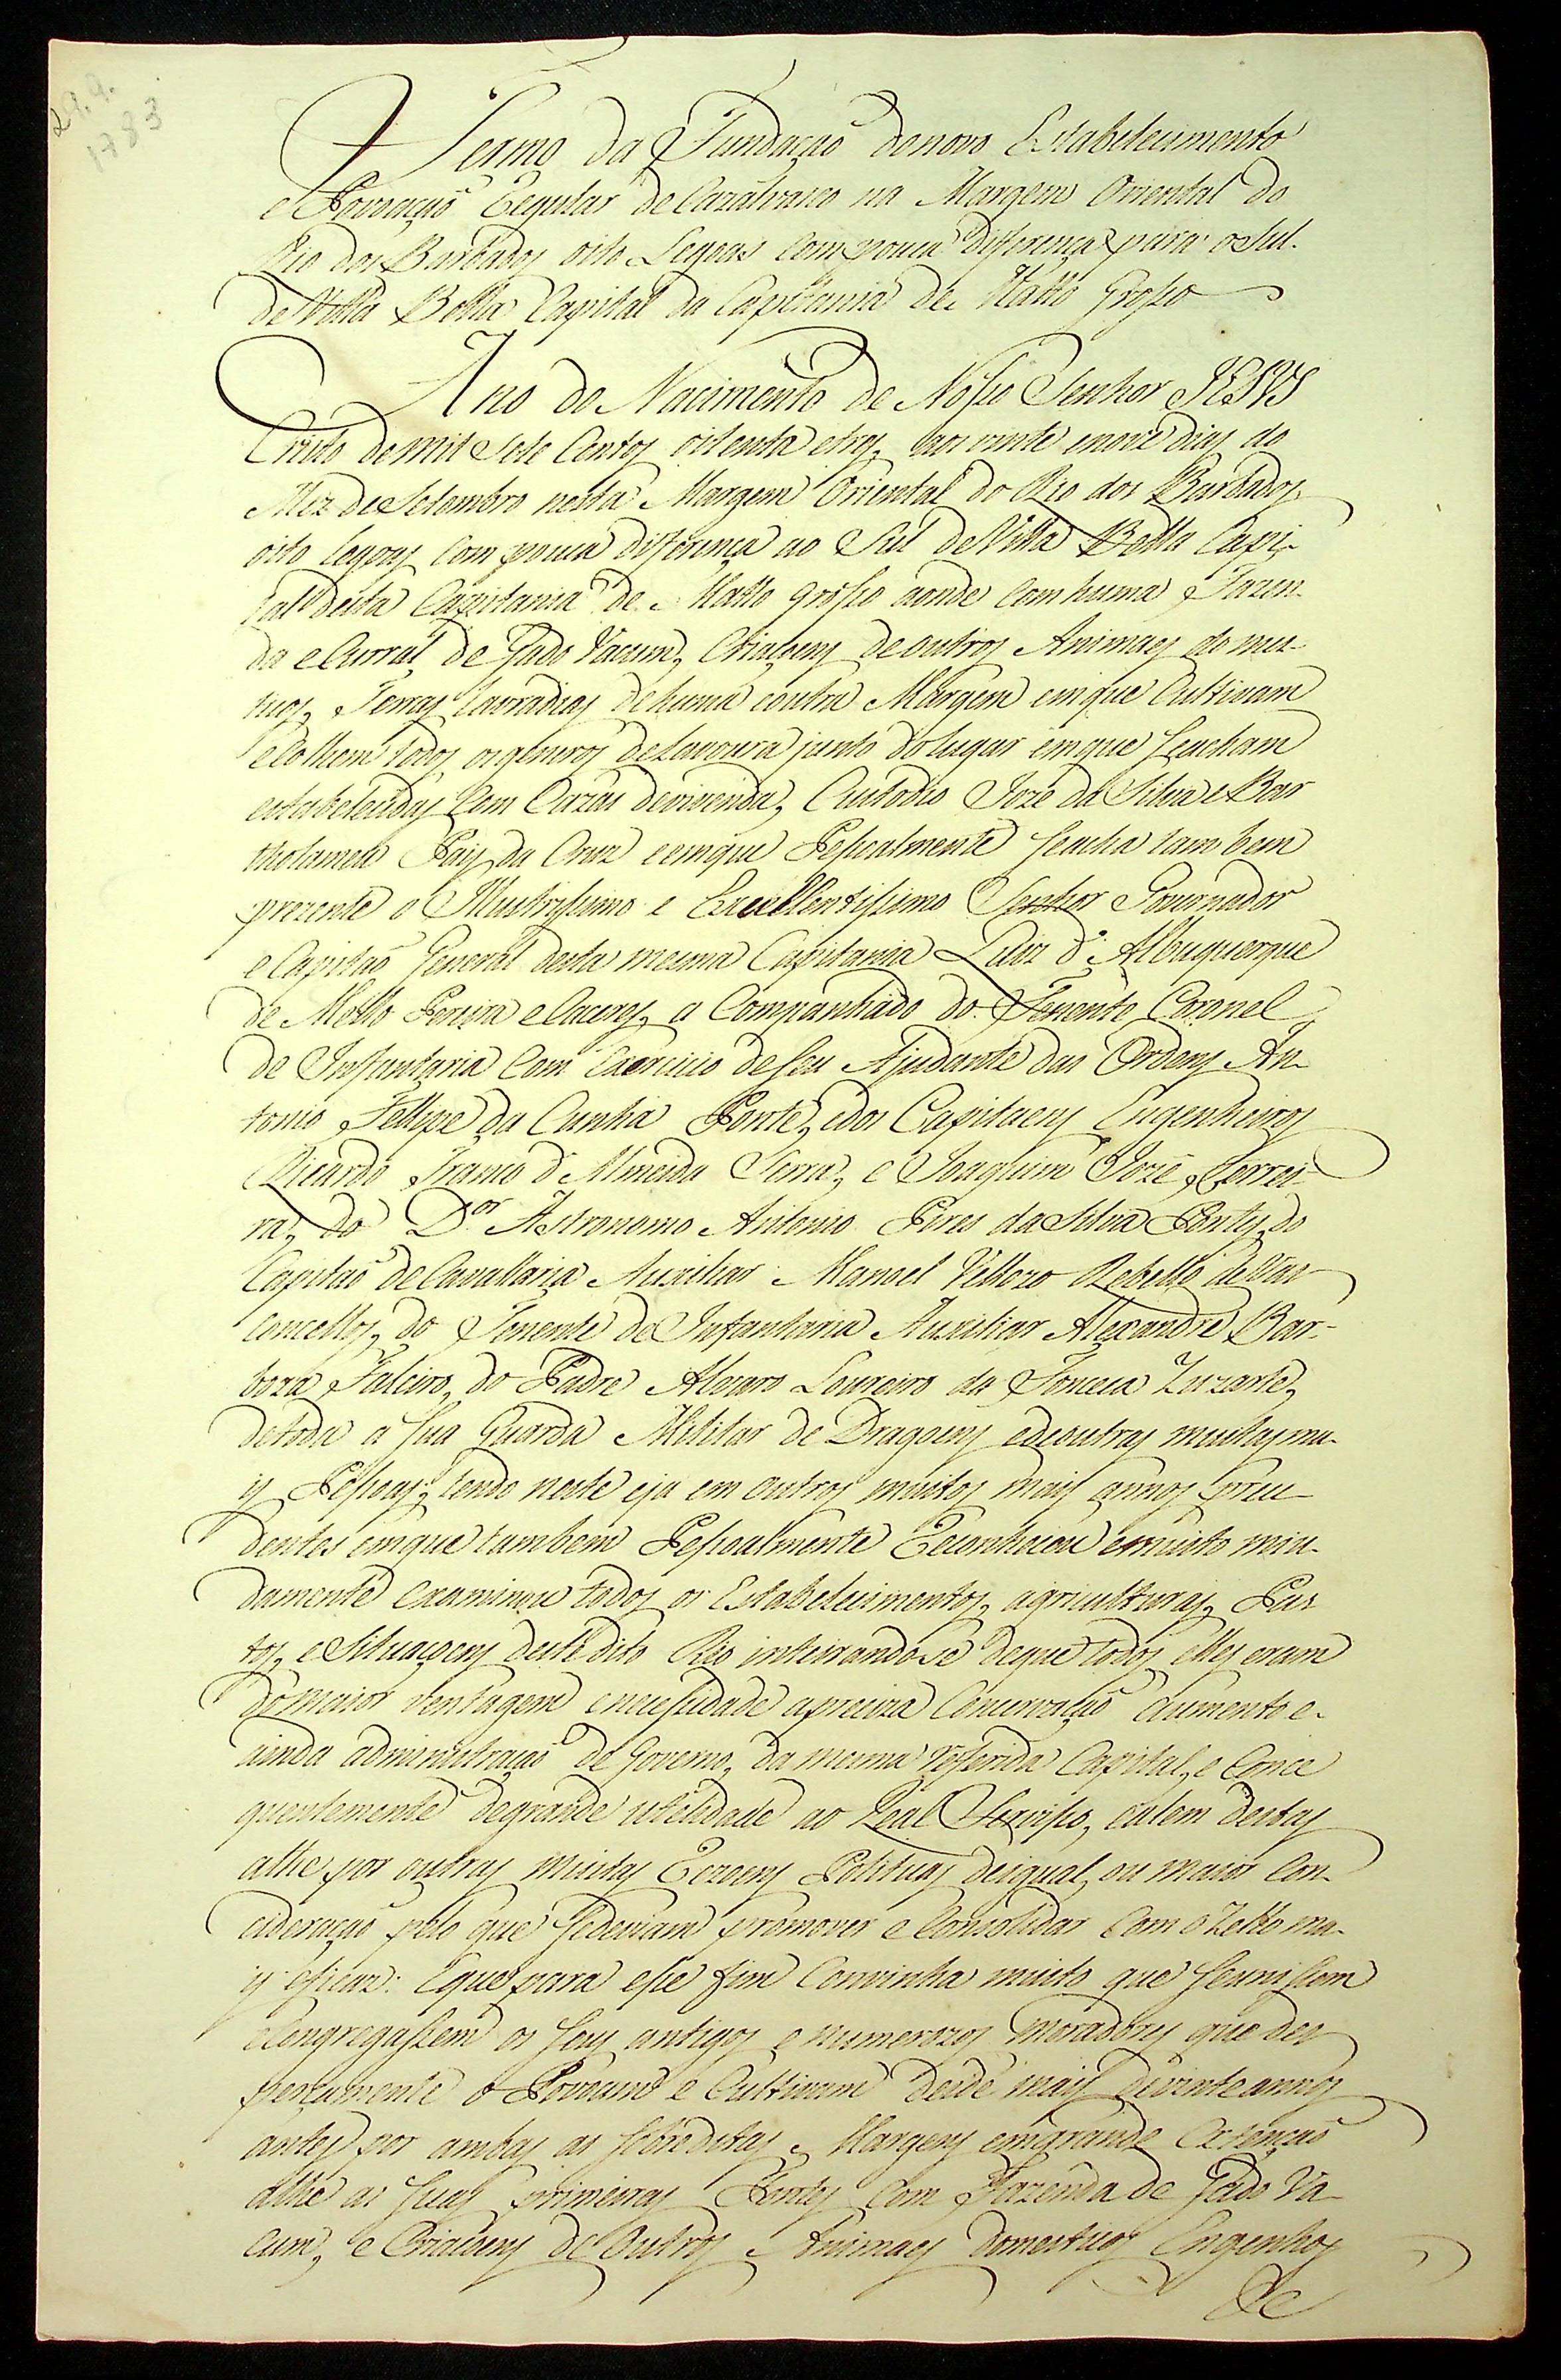 29.9.
1783
Termo da Fundaçaõ do novo Estabelecimento
e Povoaçaõ Regular de Cazalvasco na Margem Oriental do
Rio dos Barbados oito Legoas com pouca differença para o Sul
de Villa Bella Capital da Capitania de Matto Grosso
Anno do Nacimento de Nosso Senhor JESVS
Cristo de mil Sete Centos oitenta e tres, aos vinte e nove dias do
Mez de Setembro nesta Margem Oriental do Rio dos Barbados,
oito legoas com pouca differença ao Sul de Villa Bella Capi-
tal desta Capitania de Matto grosso aonde com huma Fazen-
da e Curral de Gado Vacum, Criaçoens de outros Animaes do mes-
Terras lavradias de huma e outra Margem em que Cultivam
e Colhem todos os generos de Lavoura junto do lugar em que se acham
estabelecidas com Cazas de vivenda, Custodio Joze da Silva e Bar
tholameu Pais da Cruz e em que Pessoalmente se acha tam bem
prezente o Illustrissimo e Excellentissimo Senhor Governador
e Capitaõ General desta mesma Capitania Luiz d' Albuquerque
de Mello Pereira e Caceres, a Companhado do Tenente Coronel
de Infantaria Com Exercicio de seu Ajudante das Ordens An-
tonio Fellipe da Cunha Ponte, e dos Capitaens Engenheiros
Ricardo Franco d' Almeida Serra, e Joaquim Joze Ferrei-
ra, do D.or Astronomo Antonio Pires da Silva Pontes, do
Capitaõ de Cavallaria Auxiliar Manoel Vellozo Rebello de Vas-
concellos, do Tenente de Infantaria Auxiliar Alexandre Bar-
boza Faleiro, do Padre Alvaro Loureiro da Fonceca Zuzarte,
de toda a sua Guarda Militar de Dragoens e de outras muitas ma-
is Pessoas; tendo neste e ja em outros muitos mais annos prece-
dentes em que tambem Pessoalmente Reconheceu e muito miu-
damente examinou todos os Estabelecimentos, agriculturas, Pas
tos, e Situaçoens deste dito Rio inteirando se de que todos elles eram
do maior ventagem e necessidade a preciza Concervaçaõ Aumento e
ainda administraçaõ de Governo, da mesma referida Capital, e Conce
quentemente de grande utelidade ao Real Serviço, e alem destas
athe por outras muitas Rezoens Politicas de igual, ou maior Con-
cideraçaõ pelo que se deviam promover e Consolidar Com o Zello ma-
is eficaz: E que para esse fim Convinha muito que se unissem
e Congregassem os seus antigos e numerozos moradores que des
percamente o Povoam e Cultivam desde mais de vinte annos
antes por ambas as Sobreditas Margens em grande Extençaõ
athe as suas primeiras Fontes Com Fazenda de Gado Va
cum, e Criaçoens de Outros Animaes Domesticos Engenhos
de